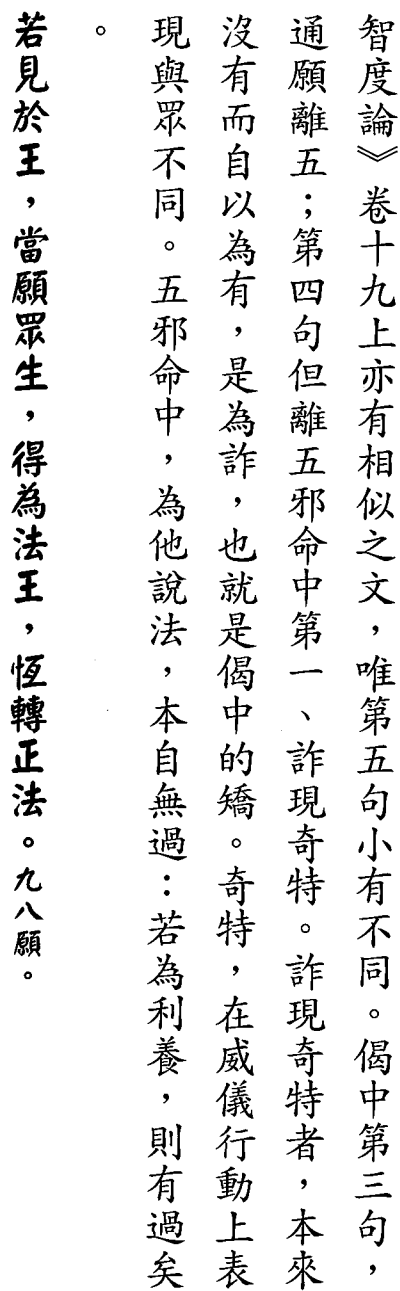 智度論》卷十九上亦有相似之文，唯第五句小有不同。偈中第三句，
通願離五；第四句但離五邪命中第一、詐現奇特。詐現奇特者，本來
沒有而自以為有，是為詐，也就是偈中的矯。奇特，在威儀行動上表
現與眾不同。五邪命中，為他說法，本自無過：若為利養，則有過矣
。
若見於王，當願眾生，得為法王，恆轉正法。九八願。